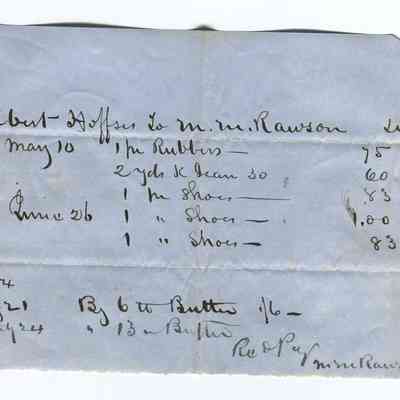 bert Hoffses To M. M. Rawson
May 10 1 pr Rubbers — 75
2 yds K Jean 30 60
1 pr Shoes — 83
June 26 1 " Shoes — 1.00
1 " Shoes — 83
4
21 By 6 lb Butter 1/6 —
24 " 13 " Butter
Rec d Pay
M M Raws